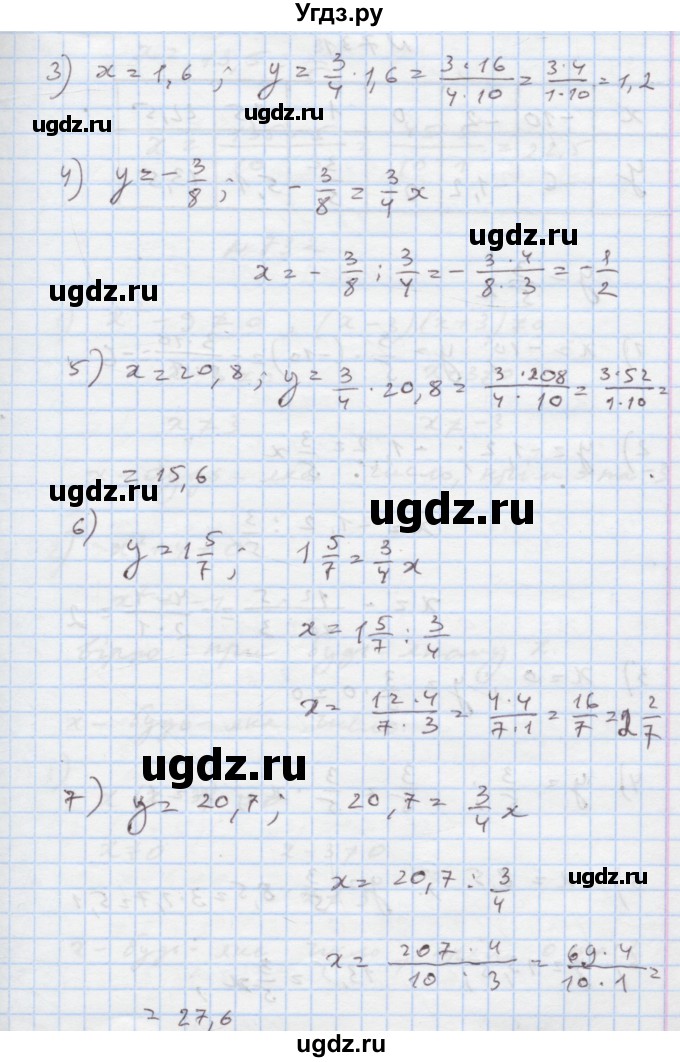 Угдз.ру
3) x = 1,6 ; y = 3/4 · 1,6 = 3·16/4·10 = 3·4/1·10 = 1,2
ugdz.ru ugdz.ru
4) y = - 3/8 ; - 3/8 = 3/4 x
ugdz.ru
x = - 3/8 : 3/4 = - 3·4/8·3 = - 1/2
ugdz.ru
5) x = 20,8 ; y = 3/4 · 20,8 = 3·208/4·10 = 3·52/1·10 =
= 15,6
ugdz.ru ugdz.ru
6) y = 1 5/7 ; 1 5/7 = 3/4 x
x = 1 5/7 : 3/4
x = 12·4/7·3 = 4·4/7·1 = 16/7 = 2 2/7
ugdz.ru
7) y = 20,7 ; 20,7 = 3/4 x
x = 20,7 : 3/4
ugdz.ru
x = 207·4/10:3 = 69·4/10·1 =
= 27,6
ugdz.ru ugdz.ru